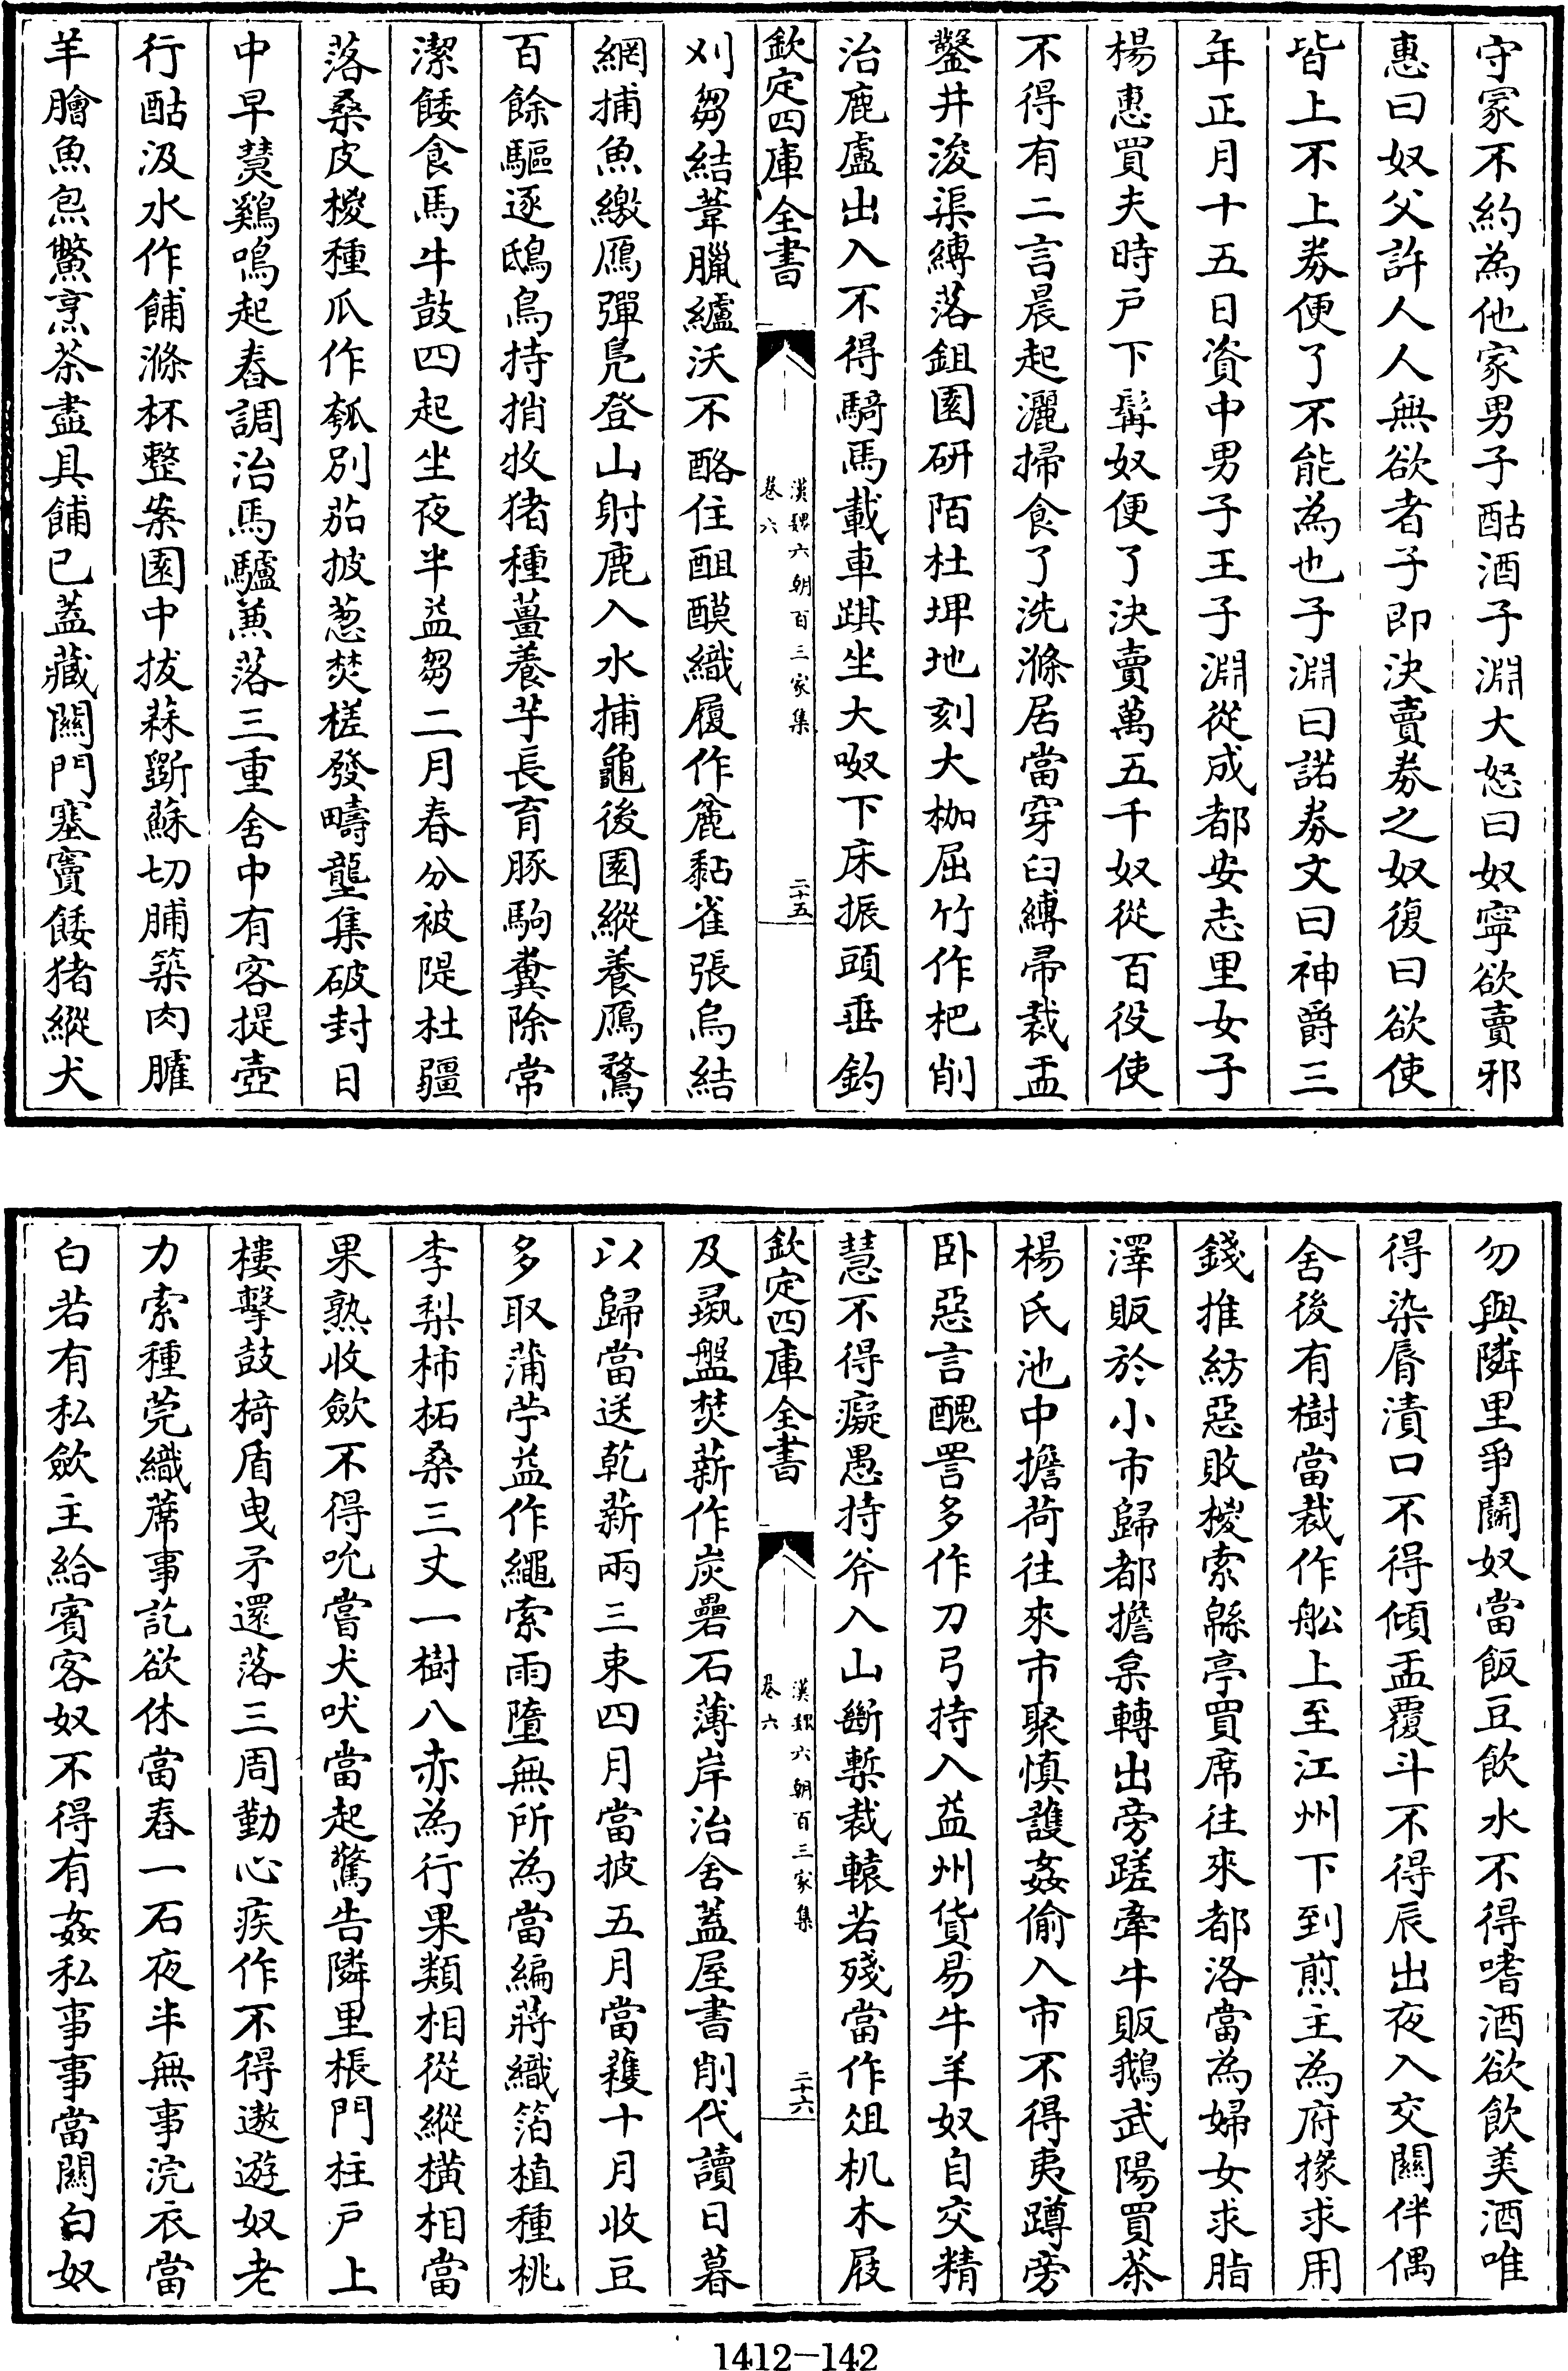 守冢不約為他家男子酤酒子淵大怒曰奴寧欲賣邪
惠曰奴父許人人無欲者子即決賣券之奴復曰欲使
皆上不上券便了不能為也子淵曰諾券文曰神爵三
年正月十五日資中男子王子淵從成都安志里女子
楊惠買夫時户下髯奴便了決賣萬五千奴從百役使
不得有二言晨起灑掃食了洗滌居當穿臼縛帚裁盂
鑿井浚渠縛落鉏園研陌杜埤地刻大枷屈竹作杷削
治鹿盧出入不得騎馬載車踑坐大呶下床振頭垂釣
欽定四庫全書
漢魏六朝百三家集
卷六
二十五
刈芻結葦臘纑沃不酪住䣯醿織履作麄黏雀張烏結
網捕魚繳鴈彈鳧登山射鹿入水捕龜後園縱養鴈鶩
百餘驅逐鴟鳥持捎牧猪種薑養芋長育豚駒糞除常
潔餧食馬牛鼓四起坐夜半益芻二月春分被隄杜疆
落桑皮椶種瓜作瓠别茄披葱焚槎發疇壟集破封日
中早㷅鷄鳴起舂調治馬驢兼落三重舍中有客提壺
行酤汲水作餔滌杯整桉園中拔蒜斵蘇切脯築肉臛
羊膾魚炰鱉烹茶盡具餔已蓋藏關門塞竇餧猪縱犬
勿與隣里爭鬭奴當飯豆飲水不得嗜酒欲飲美酒唯
得染脣漬口不得傾盂覆斗不得辰出夜入交關伴偶
舍後有樹當裁作舩上至江州下到煎主為府掾求用
錢推紡惡敗椶索緜亭買席往來都洛當為婦女求脂
澤販於小市歸都擔枲轉出旁蹉牽牛販鵝武陽買茶
楊氏池中擔荷往來市聚慎護姦偷入市不得夷蹲旁
卧惡言醜詈多作刀弓持入益州貨易牛羊奴自交精
慧不得癡愚持斧入山斷槧裁轅若殘當作俎机木屐
欽定四庫全書
漢魏六朝百三家集
卷六
二十六
及彘盤焚薪作炭礨石薄岸治舍蓋屋書削代讀日暮
以歸當送乾薪兩三束四月當披五月當穫十月收豆
多取蒲苧益作繩索雨墮無所為當編蔣織箔植種桃
李梨柿柘桑三丈一樹八赤為行果類相從縱橫相當
果熟收歛不得吮嘗犬吠當起驚告隣里棖門柱户上
樓擊鼓椅盾曳矛還落三周勤心疾作不得遨遊奴老
力索種莞織蓆事訖欲休當舂一石夜半無事浣衣當
白若有私歛主給賓客奴不得有姦私事事當關白奴
1412—142